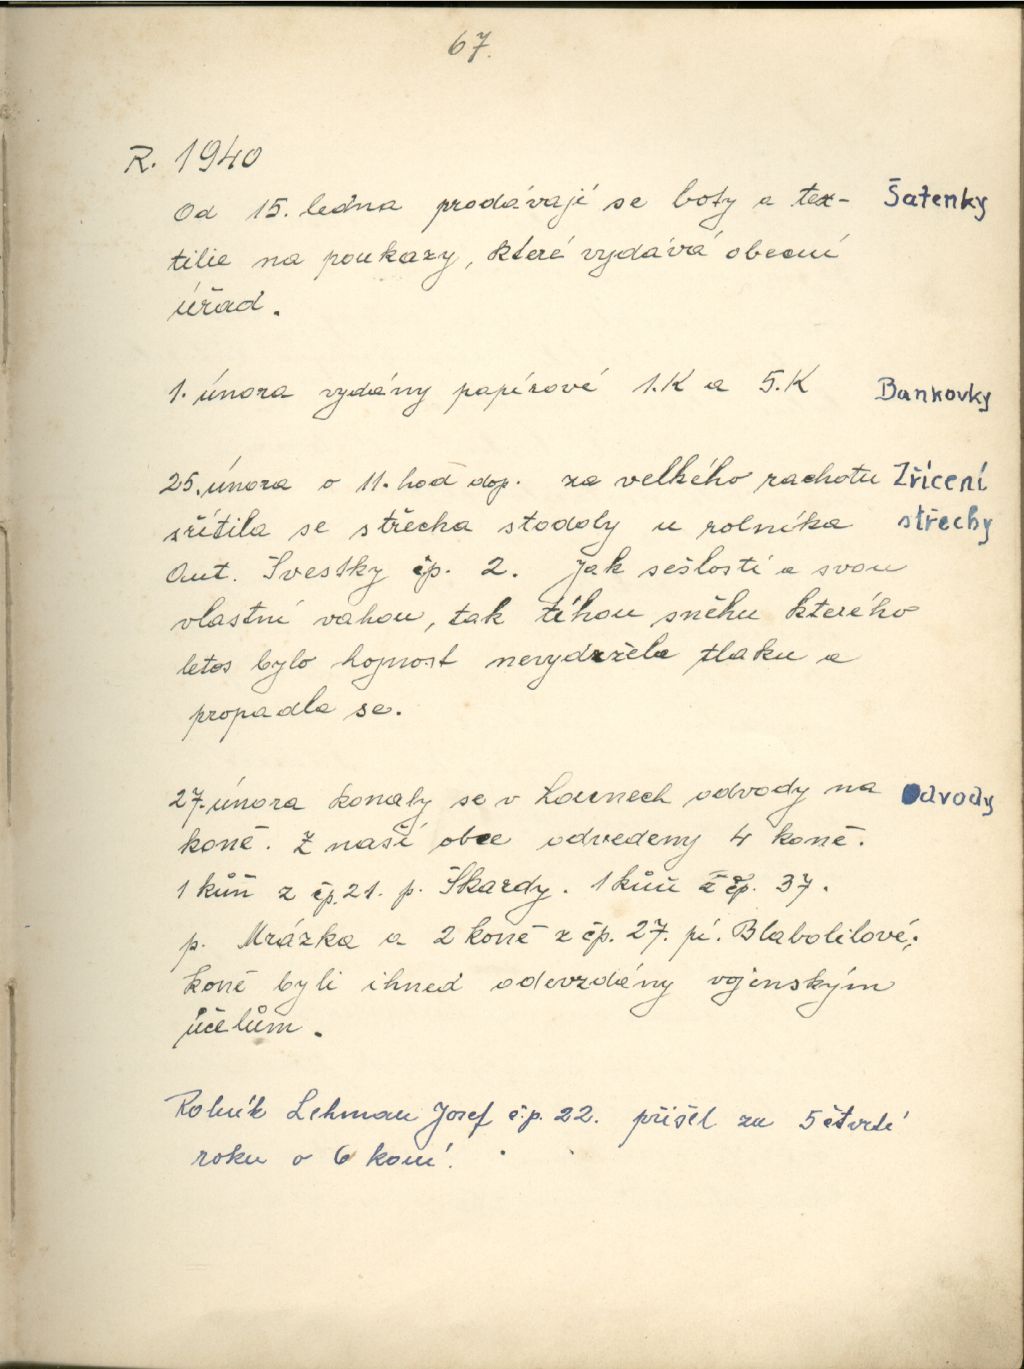 67.
R. 1940
Od 15. ledna prodávají se boty a tex- Šatenky
tilie na poukazy, které vydává obecní
úřad.
1. února vydány papírové 1.K a 5.K Bankovky
25. února o 11. hod dop. za velkého rachotu Zřícení
sřítila se střecha stodoly u rolníka střechy
Ant. Švestky čp. 2. Jak sešlostí a svou
vlastní vahou, tak tíhou sněhu kterého
letos bylo hojnost nevydržela tlaku a
propadla se.
27. února konaly se v Lounech odvody na Odvody
koně. Z naší obce odvedeny 4 koně.
1 kůň z čp. 21. p. Škardy. 1 kůň z čp. 37.
p. Mrázka a 2 koně z čp. 27. pí. Blabolilové;
koně byli ihned odevzdány vojenským
účelům.
Rolník Lehman Josef č.p. 22. přišel za 5 čtvrtí
roku o 6 koní.